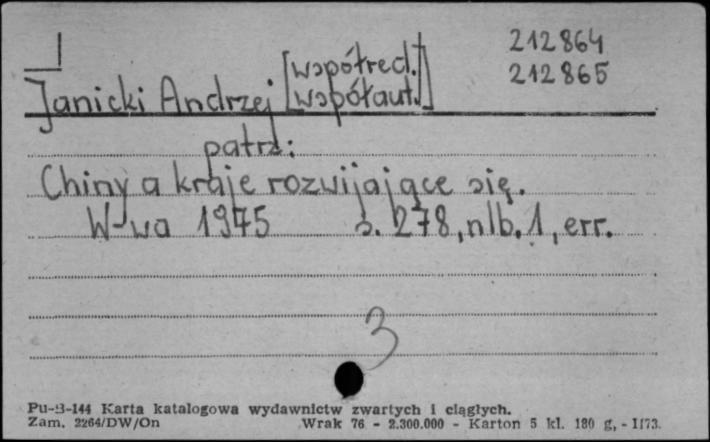 212864
[współred.]
212865
Janicki Andrzej [współaut.]
patrz:
Chiny a kraje rozwijające się.
W-wa 1975 s. 278, nlb. 1, err.
3
Pu-B-144 Karta katalogowa wydawnictw zwartych i ciągłych.
Zam. 2264/DW/On Wrak 76 - 2.300.000 - Karton 5 kl. 180 g, - II73.